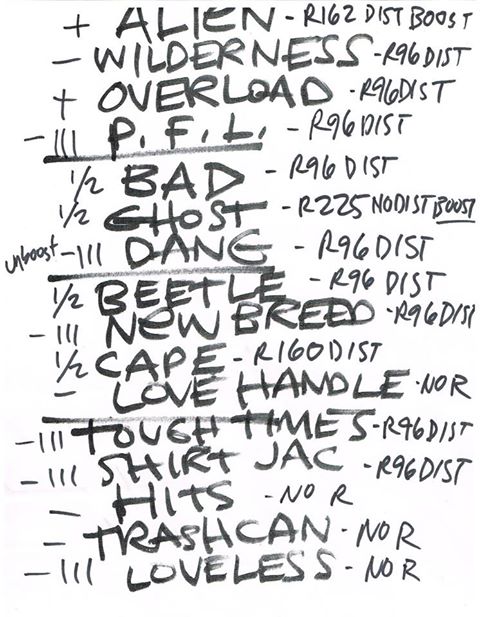 + ALIEN - R162 DIST BOOST
- WILDERNESS - R96 DIST
+ OVERLOAD - R96 DIST
- III P. F. L. - R96 DIST
1/2 BAD - R96 DIST
1/2 GHOST - R225 NO DIST BOOST
unboost - III DANG - R96 DIST
1/2 BEETLE - R96 DIST
- III NEW BREED - R96 DIST
1/2 CAPE - R160 DIST
- LOVE HANDLE - NO R
- III TOUGH TIMES - R96 DIST
- III SHIRT JAC - R96 DIST
- HITS - NO R
- TRASHCAN - NO R
- III LOVELESS - NO R